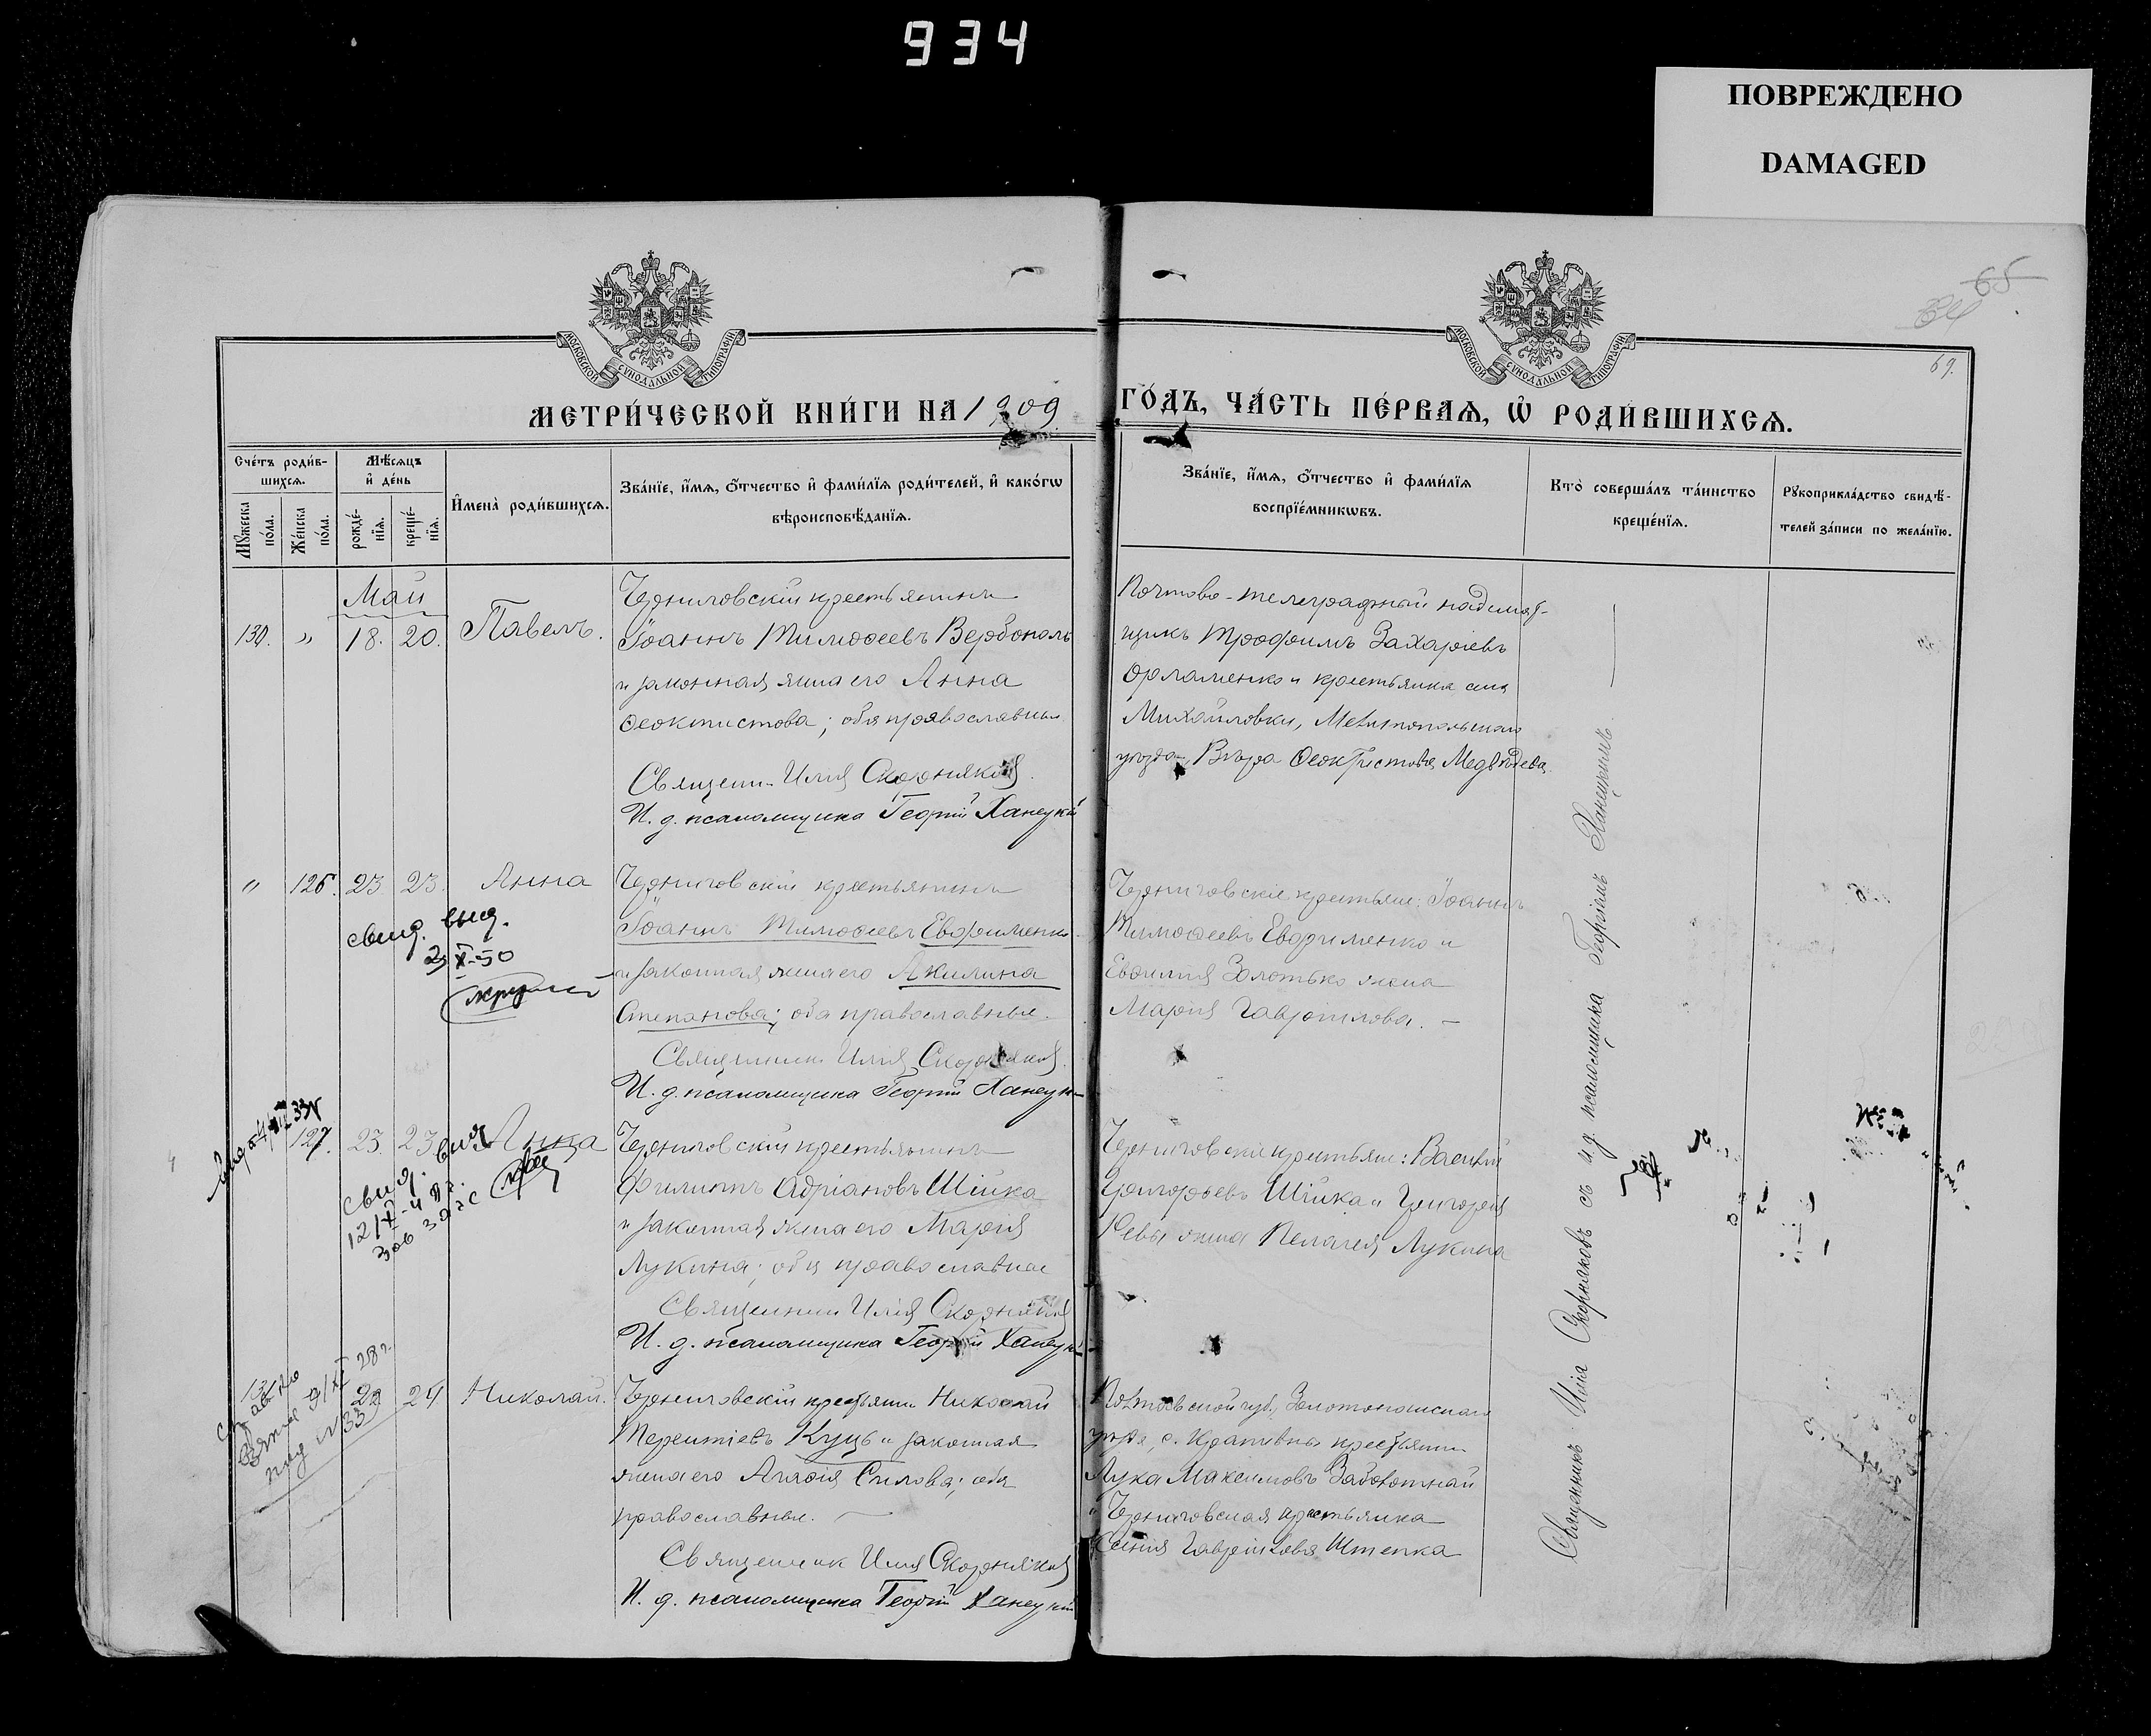 934
ПОВРЕЖДЕНО
DAMAGED
65
34
69.
МОСКОВСКОЙ СѴНОДАЛЬНОЙ ТИПОГРАФІИ
МОСКОВСКОЙ СѴНОДАЛЬНОЙ ТИПОГРАФІИ
МЕТРИ́ЧЕСКОЙ КНИ́ГИ НА 1909
ГО́ДЪ, ЧА́СТЬ ПЕ́РВАѦ, Ѡ҆ РОДИ́ВШИХСѦ.
Сче́тъ роди́в-
шихсѧ.
Мꙋ́жеска
по́ла.
Же́нска
по́ла.
Мѣ́сѧцъ
и҆ де́нь
рожде́-
нїѧ.
креще́-
нїѧ.
И҆мена̀ роди́вшихсѧ.
Зва́нїе, и҆́мѧ, ѻ҆́тчество и҆ фами́лїѧ роди́телей, и҆ како́гѡ
вѣроисповѣ́данїѧ.
Зва́нїе, и҆́мѧ, ѻ҆́тчество и҆ фами́лїѧ
воспрїе́мникѡвъ.
Кто̀ соверша́лъ та́инство
креще́нїѧ.
Рꙋкоприкла́дство свидѣ́-
телей за́писи по жела́нїю.
Май
130. „ 18. 20. Павелъ.
Черниговскій крестьянинъ
Іоаннъ Тимоѳеевъ Вербополь
и законная жена его Анна
Ѳеоктистова; оба православные
Священ. Илія Скорняковъ
И. д. псаломщика Георгій Ханецкій
Почтово-телеграфный надсмотр-
щикъ Трофимъ Захаріевъ
Орламенко и крестьянка села
Михайловки, Мелитопольскаго
уѣзда, Вѣра Ѳеоктистова Медвѣдева
„ 126. 23 23. Анна
свид. выд.
X-50
Черниговскій крестьянинъ
Іоаннъ Тимоѳеевъ Евфименко
и законная жена его Акилина
Степанова; оба православные.
Священник Илія Скорняковъ
И. д. псаломщика Георгій Ханецкій
Черниговскіе крестьяне: Іоаннъ
Тимоѳеевъ Евфименко и
Евфимія Золотько жена
Марія Гавріилова.
127. 23. 23 Анна
свид.
Черниговскій крестьянинъ
Филиппъ Адріановъ Шійка
и законная жена его Марія
Лукина; оба православные
Священник Илія Скорняковъ
И. д. псаломщика Георгій Ханецкій
Черниговскіе крестьяне: Василій
Григорьевъ Шійка и Григорія
Ревы жена Пелагея Лукина
131 22 24 Николай.
28 г.
Черниговскій крестьянин Николай
Терентіевъ Куцъ и законная
жена его Агафія Силова; оба
православные.
Священник Илія Скорняковъ
И. д. псаломщика Георгій Ханецкій
Полтавской губ., Золотоношскаго
уѣзда, с. Крапивны крестьянин
Лука Максимовъ Заболотный
и Черниговская крестьянка
Ксенія Гавріилова Штепка
Священникъ Илія Скорняковъ съ и. д. псаломщика Георгіемъ Ханецкимъ